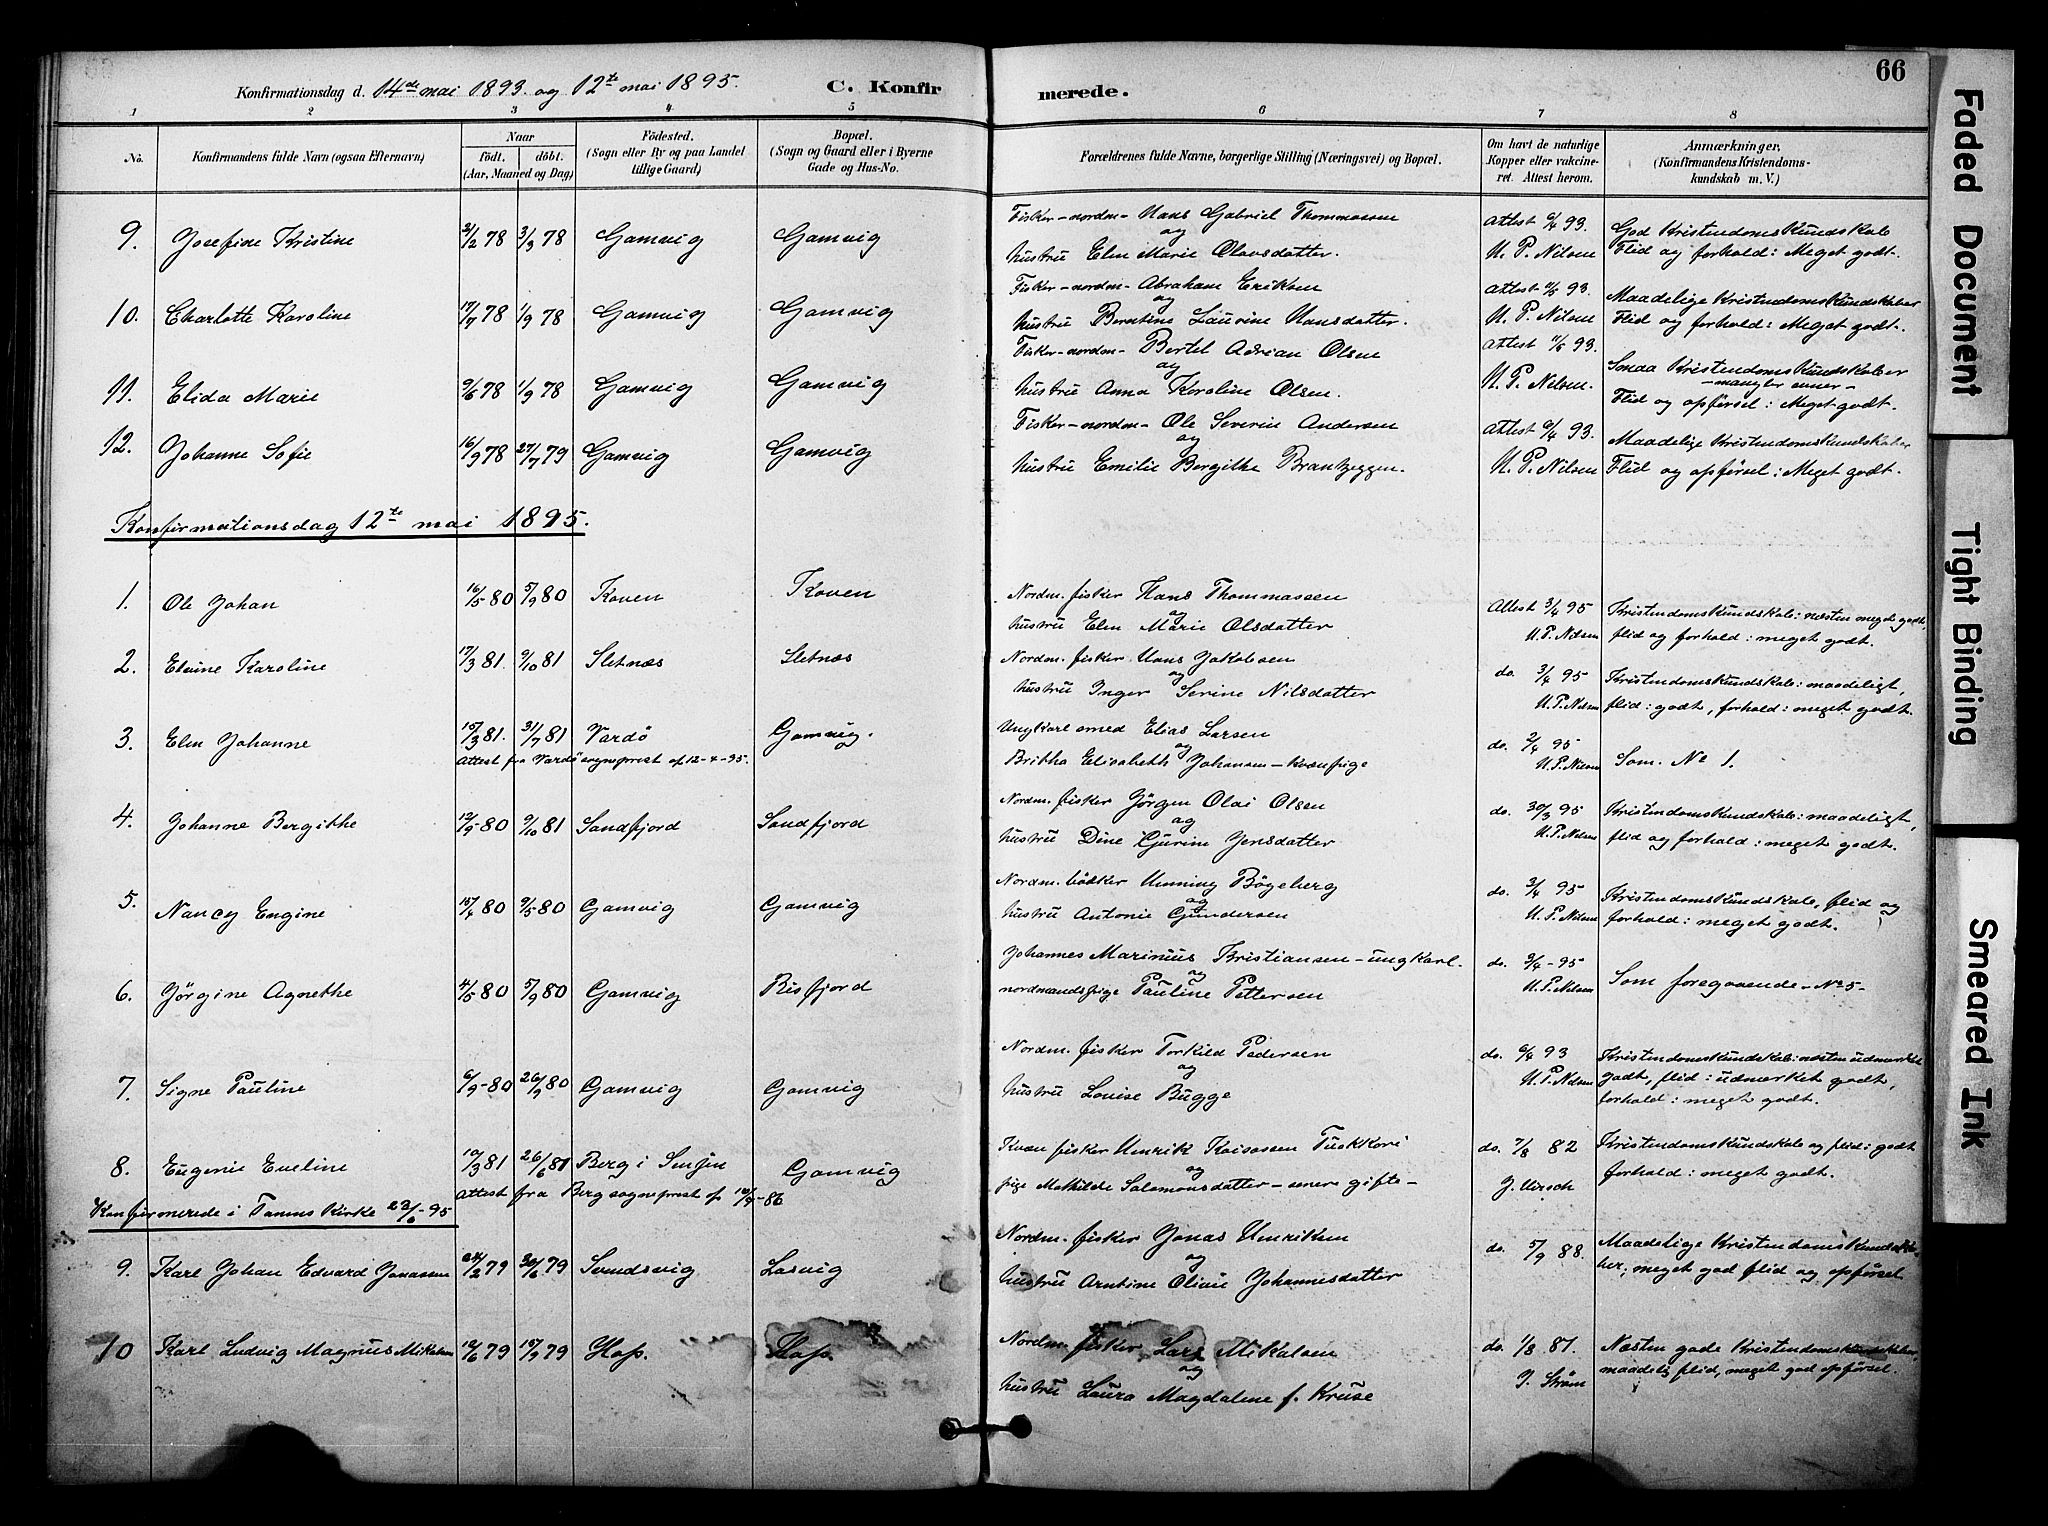 66
Konfirmationsdag d. 14de mai 1893 og 12te mai 1895.
C. Konfirmerede.
1 2 3 4 5 6 7 8
No.
Konfirmandens fulde Navn (ogsaa Efternavn)
Naar
födt. döbt.
(Aar, Maaned og Dag)
Födested.
(Sogn eller By og paa Landet
tillige Gaard)
Bopæl.
(Sogn og Gaard eller i Byerne
Gade og Hus-No.
Forældrenes fulde Navne, borgerlige Stilling (Næringsvei) og Bopæl.
Om havt de naturlige
Kopper eller vakcine-
ret. Attest herom.
Anmærkninger,
(Konfirmandens Kristendoms-
kundskab m. V.)
9. Josefine Kristine 2/2 78 3/3 78 Gamvig Gamvig
Fisker-nordm- Hans Gabriel Thommassen
og
hustru Elen Marie Olavsdatter.
Attest 6/4 93.
N. P. Nilsen
God Kristendomskundskab
Flid og forhold: Meget godt.
10. Charlotte Karoline 17/7 78 1/9 78 Gamvig Gamvig
Fisker-nordm- Abraham Eriksen
og
hustru Berntine Laurine Hansdatter.
Attest 11/5 93.
N. P. Nilsen
Maadelige Kristendomskundskaber
Flid og forhold: Meget godt.
11. Elida Marie 9/6 78 1/9 78 Gamvig Gamvig
Fisker-nordm- Bertel Adrian Olsen
og
hustru Anna Karoline Olsen.
Attest 11/5 93.
N. P. Nilsen.
Smaa Kristendomskundskaber
-mangler evner-
Flid og opførsel: Meget godt.
12. Johanne Sofie 16/9 78 27/7 79 Gamvig Gamvig
Fisker-nordm- Ole Severin Andersen
og
hustru Emilie Bergithe Brantzeggen.
Attest 6/4 93.
N. P. Nilsen
Maadelige Kristendomskundskaber
Flid og opførsel: Meget godt.
Konfirmationsdag 12te mai 1895.
1. Ole Johan 16/5 80 5/9 80 Koven Koven
Nordm. fisker Hans Thommassen
og
hustru Elen Marie Olsdatter
Attest 3/4 95
N. P. Nilsen
Kristendomskundskab: næsten meget godt,
flid og forhold: meget godt.
2. Elvine Karoline 17/3 81 9/10 81 Sletnæs Sletnæs
Nordm. fisker Hans Jakobsen
og
hustru Inger Serine Nilsdatter
do. 3/4 95
N. P. Nilsen
Kristendomskundskab: maadeligt,
flid: godt, forhold: meget godt.
3. Elen Johanne 15/3 81. 31/7 81 Vardö Gamvig.
Attest fra Vardö sogneprest af 12-4-95.
Ungkarl smed Elias Larsen
og
Britha Elisabeth Johansen - kvænpige
do. 2/4 95
N. P. Nilsen
Som No 1.
4. Johanne Bergithe 12/9-80 9/10 81 Sandfjord Sandfjord
Nordm. fisker Jörgen Olai Olsen
og
hustru Dine Gjurine Jensdatter
do. 30/3 95
N. P. Nilsen
Kristendomskundskab: maadeligt,
flid og forhold: meget godt.
5. Nancy Engine 15/4 80 9/5 80 Gamvig Gamvig
Nordm. bödker Henning Bögeberg
og
hustru Antonie Gundersen
do. 3/4 95
N. P. Nilsen
Kristendomskundskab, flid og
forhold: meget godt.
6. Jörgine Agnethe 4/5 80 5/9 80 Gamvig Risfjord
Johannes Marinius Kristiansen - ungkarl.
og
nordmandspige Pauline Pettersen
do. 3/4-95
N. P. Nilsen
Som foregaaende - No 5 -
7. Signe Pauline 6/9-80 26/9 80 Gamvig Gamvig
Nordm. fisker Torkild Pedersen
og
hustru Lovise Bugge
do. 6/4 93
N. P. Nilsen
Kristendomskundskab: næsten udmerket
godt, flid: udmerket godt,
forhold: meget godt.
8. Eugenie Eveline 10/3 81 26/6 81 Berg i Senjen Gamvig
Attest fra Berg sogneprest af 10/9-86
Kvæn fisker Henrik Kaisassen Tuskkori
og
pige Mathilde Salomonsdatter - ener gifte -
do. 7/8 82
J. Hirsch
Kristendomskundskab og flid: godt
forhold: meget godt.
Konfirmerede i Tanens Kirke 23/6-95
9. Karl Johan Edvard Jonassen 24/2 79 20/6 79 Svendsvig Lasvig
Nordm. fisker Jonas Henriksen
og
hustru Arntine Olivie Johannesdatter
do. 5/9 88.
Maadelige Kristendomskundska-
ber; meget god flid og opførsel
10 Karl Ludvig Magnus Mikalsen 12/6 79 15/9 79 Hop. Hop.
Nordm. fisker Lars Mikalsen
og
hustru Laura Magdalene f. Kruse
do. 1/8 87.
J. Ström
Næsten gode Kristendomskundskaber,
maadelig flid, meget god opførsel.
Faded Document
Tight Binding
Smeared Ink